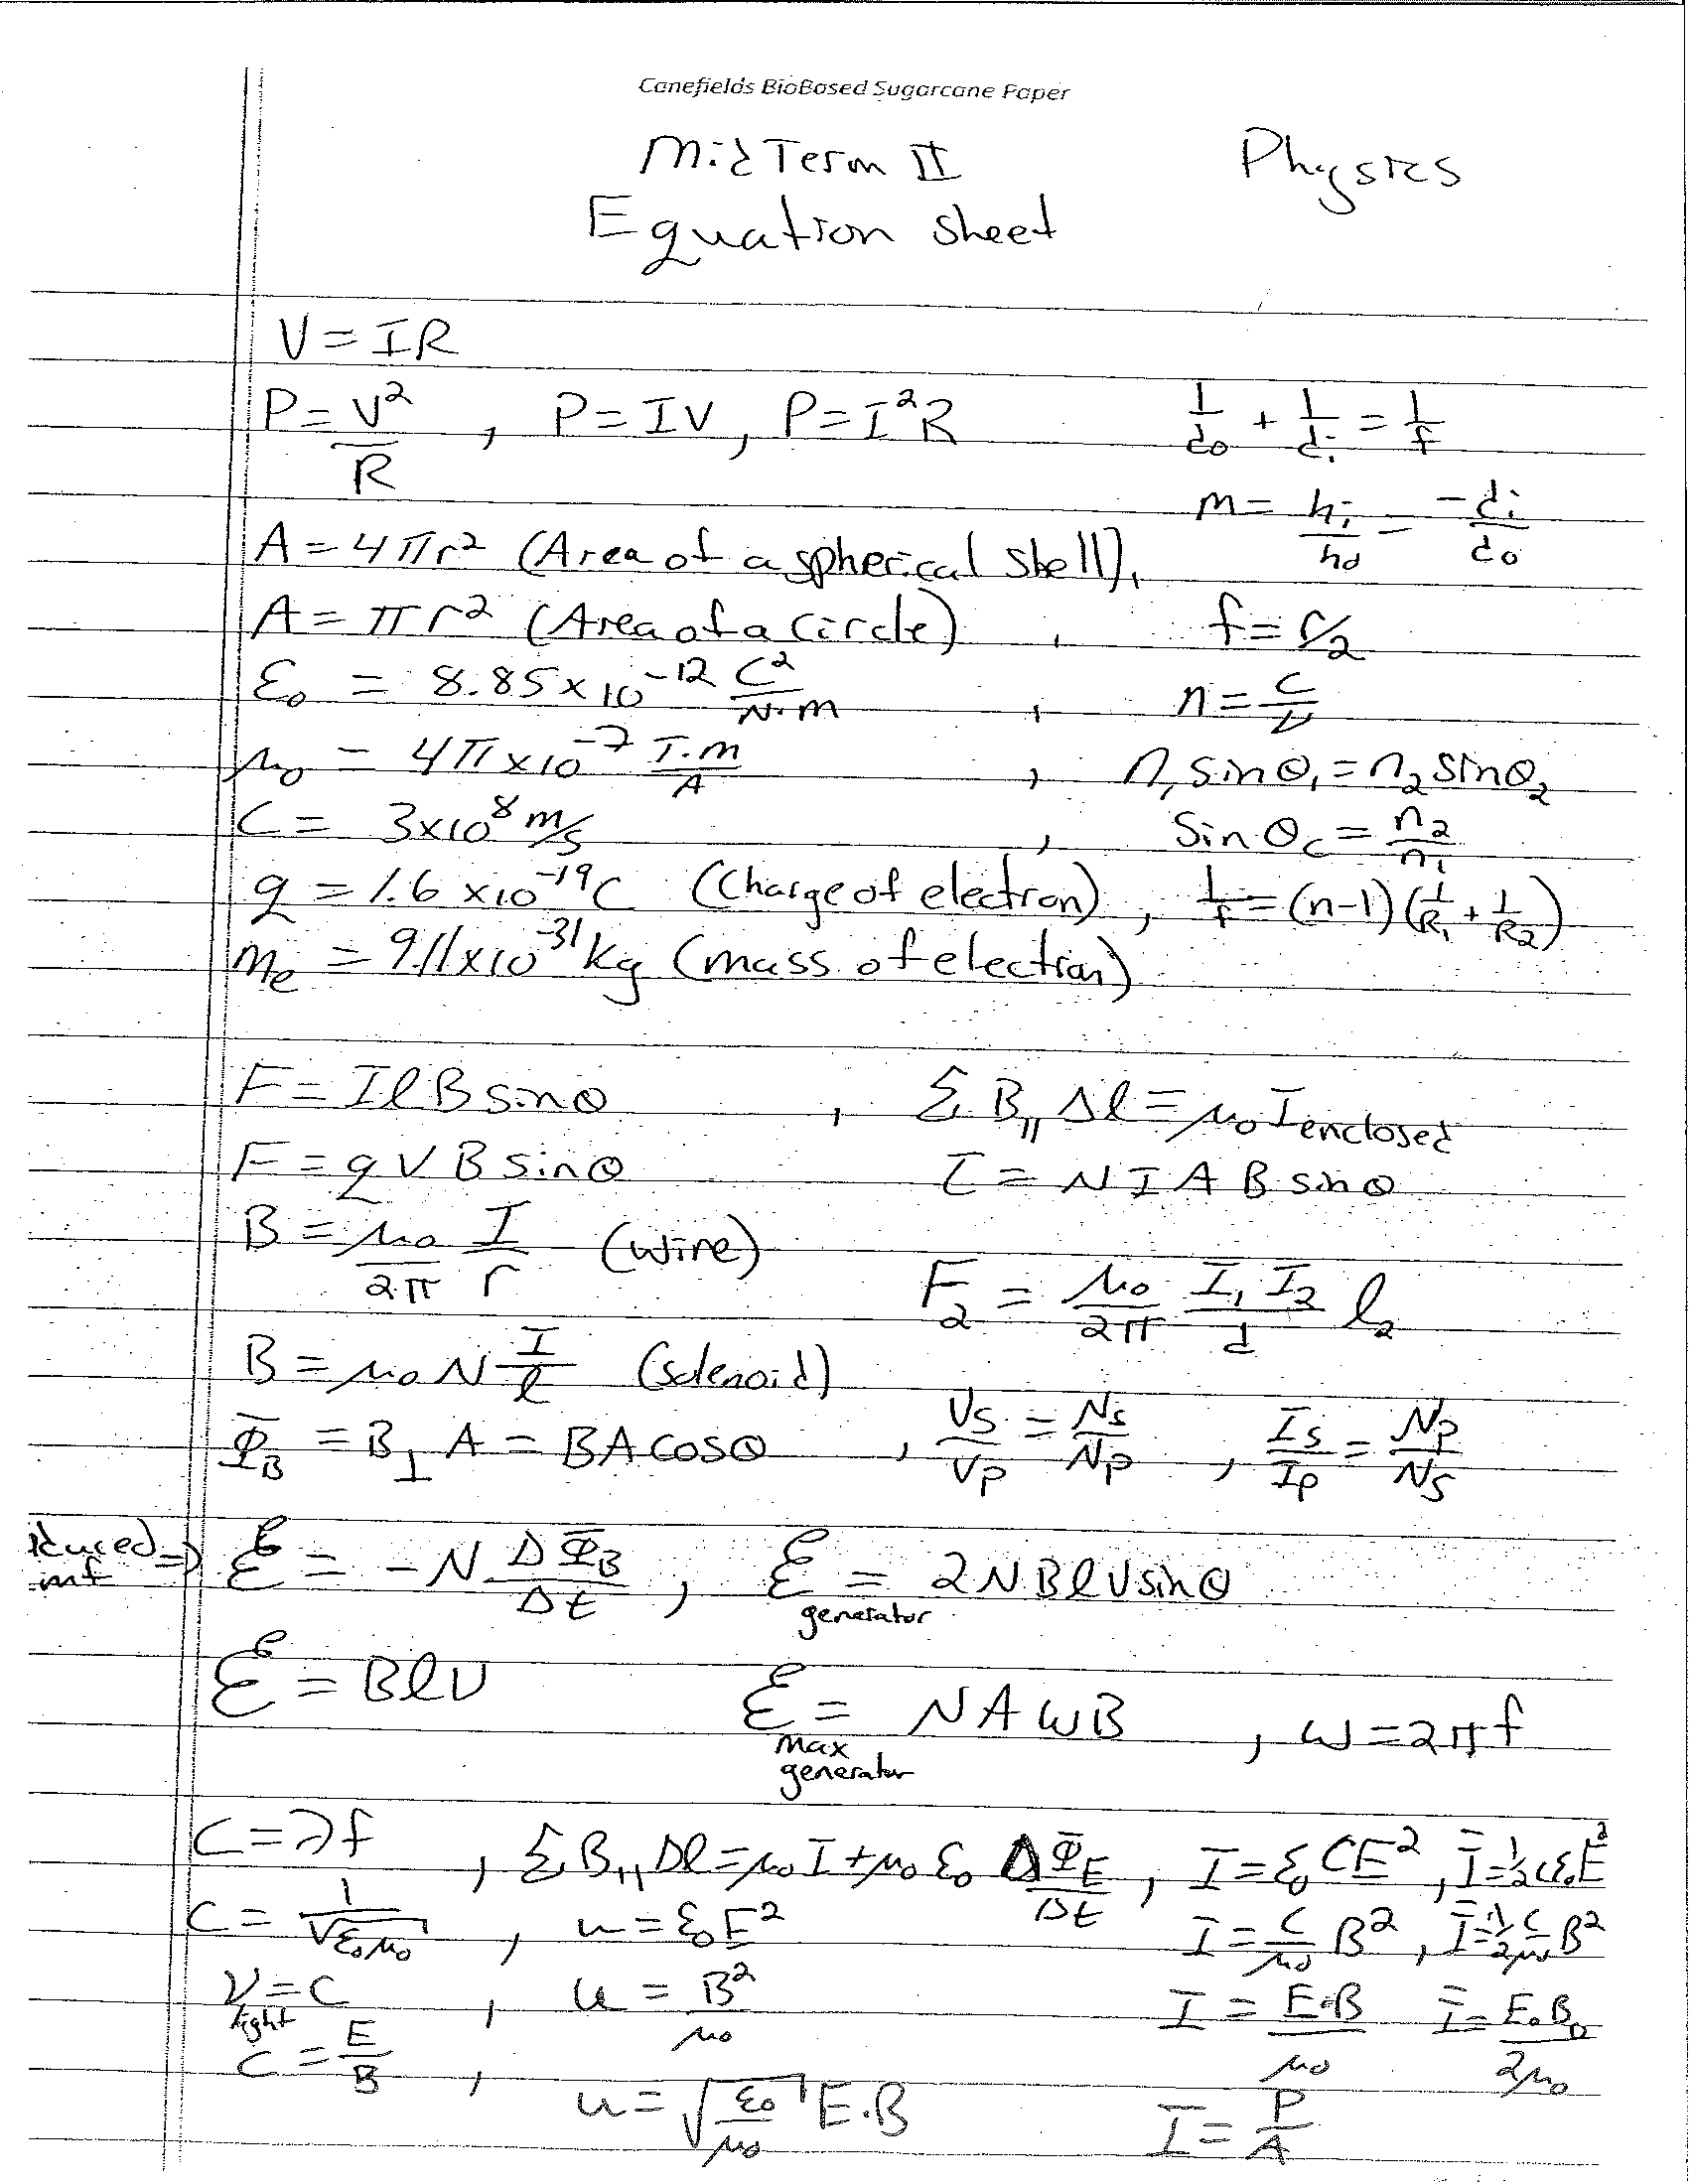 Canefields BioBased Sugarcane Paper
MidTerm II Physics
Equation sheet
V = IR
P = V²/R , P = IV, P = I²R 1/do + 1/di = 1/f
m = hi/ho = -di/do
A = 4πr² (Area of a spherical shell),
A = πr² (Area of a circle) , f = r/2
ε₀ = 8.85×10⁻¹² C²/N·m , n = c/v
μ₀ = 4π×10⁻⁷ T·m/A , n₁ sinθ₁ = n₂ sinθ₂
C = 3×10⁸ m/s , Sin θc = n₂/n₁
q = 1.6 ×10⁻¹⁹ C (Charge of electron) , 1/f = (n-1)(1/R₁ + 1/R₂)
me = 9.11×10⁻³¹ kg (mass of electron)
F = IℓB sinθ , Σ B∥ Δℓ = μ₀ I enclosed
F = qVB sinθ τ = NIAB sinθ
B = μ₀/2π I/r (wire) F₂ = μ₀/2π I₁ I₂/d ℓ₂
B = μ₀ N I/ℓ (solenoid)
ΦB = B⊥ A = BA cosθ , Vs/Vp = Ns/Np , Is/Ip = Np/Ns
duced mf ⇒ ℰ = -N ΔΦB/Δt , ℰ generator = 2NBℓV sinθ
ℰ = BℓV ℰ max generator = NAωB , ω = 2πf
C = λf , Σ B∥ Δℓ = μ₀I + μ₀ε₀ ΔΦE/Δt , I = ε₀CE² , Ī = ½cε₀E²
C = 1/√ε₀μ₀ , u = ε₀E² I = c/μ₀ B² , Ī = ½ c/μ₀ B²
V light = C , u = B²/μ₀ I = E·B/μ₀ Ī = E₀B₀/2μ₀
C = E/B , u = √ε₀/μ₀ E·B I = P/A